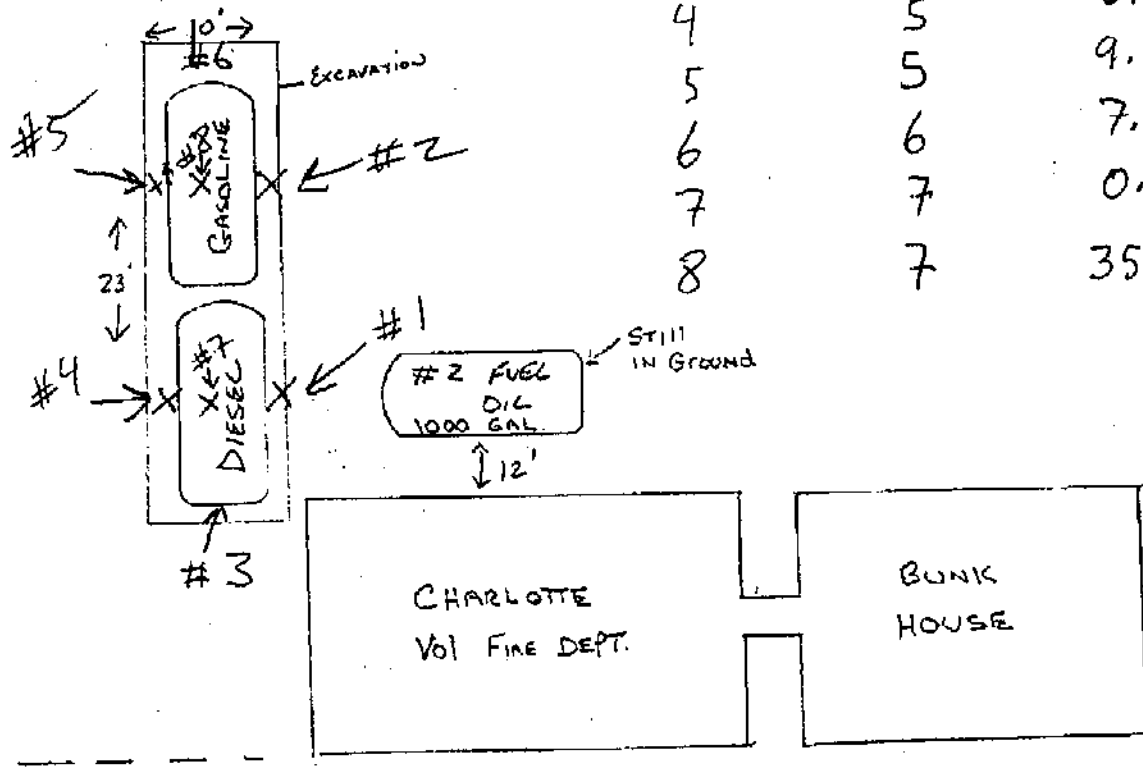 10'
#6
EXCAVATION
#5
#8
GASOLINE
#2
23'
#4
#7
DIESEL
#1
#3
#2 FUEL
OIL
1000 GAL.
STILL
IN GROUND
12'
CHARLOTTE
VOl FIRE DEPT.
BUNK
HOUSE
4 5
5 5 9.
6 6 7.
7 7 0.
8 7 35